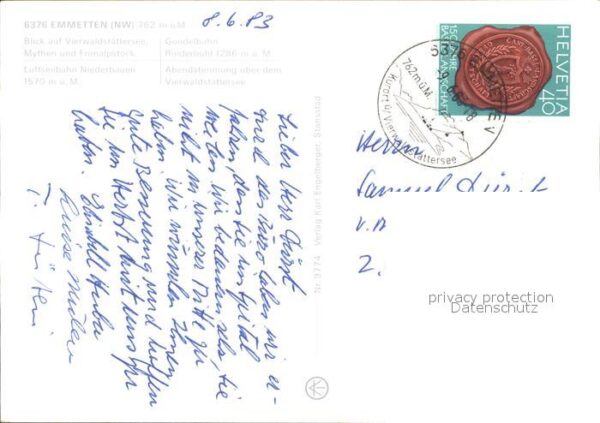 6376 EMMETTEN (NW) 762 m ü.M.
8.6.83
Blick auf Vierwaldstättersee,
Mythen und Fronalpstock.
Luftseilbahn Niederbauen
1570 m ü. M.
Gondelbahn
Rinderbühl 1286 m ü. M.
Abendstimmung über dem
Vierwaldstättersee
Lieber Herr Dürst
Durch das Büro haben wir er-
fahren, dass Sie im Spital
weilen. Wir bedauern sehr, Sie
nicht in unserer Mitte zu
haben. Wir wünschen Ihnen
gute Besserung und hoffen
Sie im Herbst mit uns
haben.
Nr. 9774 Verlag Karl Engelberger, Stansstad
HELVETIA
40
150 JAHRE
BASEL-LANDSCHAFT
6376
762 m ü M.
Kurort ü/Vierwaldstättersee
Herrn
Samuel Dürst
privacy protection
Datenschutz